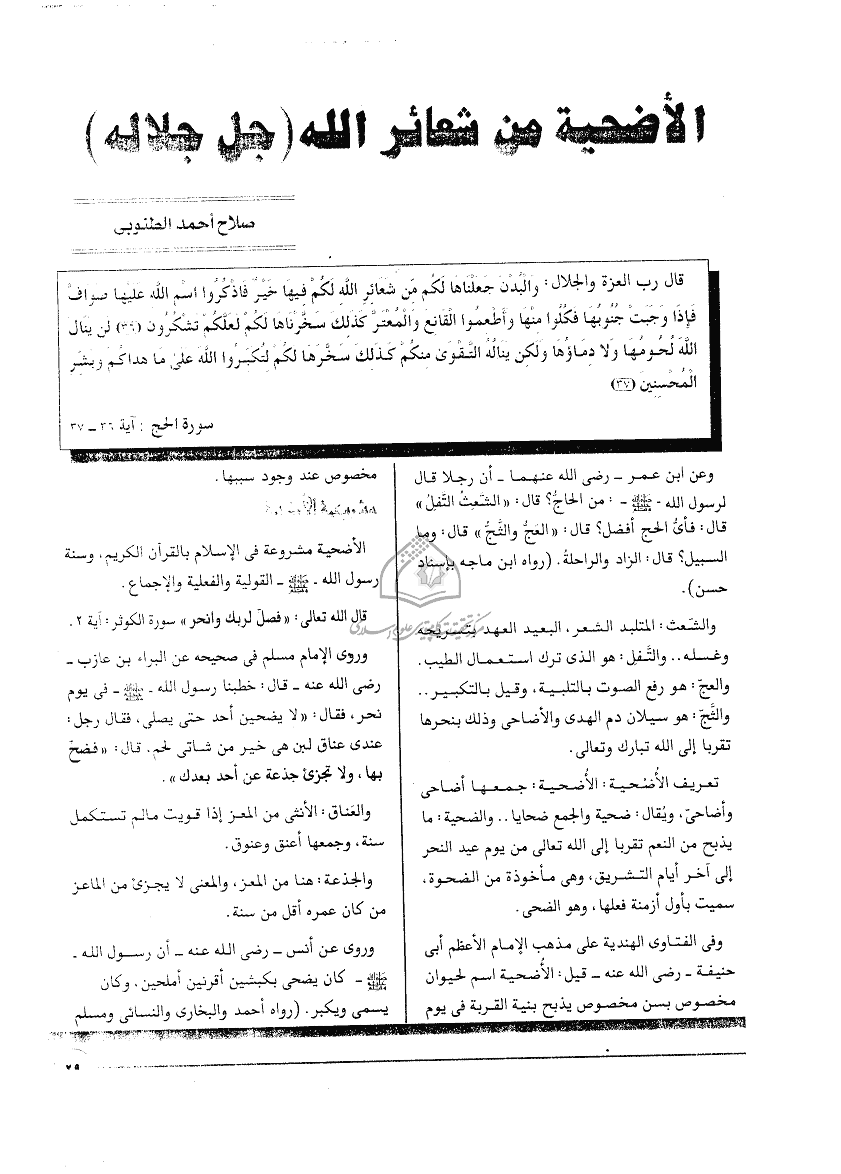 الأضحية من شعائر الله (جل جلاله)
صلاح أحمد الطنوبى
قال رب العزة والجلال: وَالْبُدْنَ جَعَلْنَاهَا لَكُم مِّن شَعَائِرِ اللَّه لَكُمْ فيهَا خَيْرٌ فَاذْكُرُوا اسْمَ اللَّه عَلَيْهَا صَوَافَّ
فَإِذَا وَجَبَتْ جُنُوبُهَا فَكُلُوا مِنْهَا وَأَطْعمُوا الْقَانعَ وَالْمُعْتَرَّ كَذَلكَ سَخَّرْنَاهَا لَكُمْ لَعَلَّكُمْ تَشْكُرُون (٣٦) لَن يَنَالَ
اللَّهَ لُحُومُهَا وَلا دمَاؤُهَا وَلَكن يَنَالُهُ التَّقْوَى منكُمْ كَذَلكَ سَخَّرَهَا لَكُمْ لتُكَبّرُوا اللَّهَ عَلَىٰ مَا هَدَاكُم وبشر
الْمُحْسنينَ (٣٧)
سورة الحج : آية ٣٦ ــ ٣٧
وعن ابن عمر ــ رضى الله عنهما ــ أن رجلا قال
لرسول الله - ﷺ - : من الحاجُّ؟ قال: «الشَعثُ التَّفلُ»
قال: فأىُّ الحج أفضل؟ قال: «العَجُّ والثَّجُّ» قال: وما
السبيل؟ قال: الزاد والراحلةُ. (رواه ابن ماجه بإسناد
حسن).
والشَعث: المتلبد الشعر، البعيد العهد بتسريحه
وغسله.. والتَّفل: هو الذى ترك استعمال الطيب.
والعجّ: هو رفع الصوت بالتلبية، وقيل بالتكبير..
والثَّجّ: هو سيلان دم الهدى والأضاحى وذلك بنحرها
تقربا إلى الله تبارك وتعالى.
تعريف الأُضْحية: الأُضحية: جمعها أضاحى
وأضاحىّ، ويُقال: ضحية والجمع ضحايا.. والضحية: ما
يذبح من النعم تقربا إلى الله تعالى من يوم عيد النحر
إلى آخر أيام التشريق، وهى مأخوذة من الضحوة،
سميت بأول أزمنة فعلها، وهو الضحى.
وفى الفتاوى الهندية على مذهب الإمام الأعظم أبى
حنيفة ــ رضى الله عنه ــ قيل: الأُضحية اسم لحيوان
مخصوص بسن مخصوص يذبح بنية القربة فى يوم
مخصوص عند وجود سببها.
الأضحية مشروعة فى الإسلام بالقرآن الكريم، وسنة
رسول الله - ﷺ - القولية والفعلية والإجماع.
قال الله تعالى: «فصلّ لربك وانحر» سورة الكوثر: آية ٢.
وروى الإمام مسلم فى صحيحه عن البراء بن عازب ــ
رضى الله عنه ــ قال: خطبنا رسول الله - ﷺ - فى يوم
نحر، فقال: «لا يضحين أحد حتى يصلى، فقال رجل:
عندى عناق لبن هى خير من شاتى لحم. قال: «فضحّ
بها، ولا تجزئ جذعة عن أحد بعدك».
والعَناق: الأنثى من المعز إذا قويت مالم تستكمل
سنة، وجمعها أعنق وعنوق.
والجذعة: هنا من المعز، والمعنى لا يجزئ من الماعز
من كان عمره أقل من سنة.
وروى عن أنس ــ رضى الله عنه ــ أن رسول الله -
ﷺ - كان يضحى بكبشين أقرنين أملحين، وكان
يسمى ويكبر. (رواه أحمد والبخارى والنسائى ومسلم